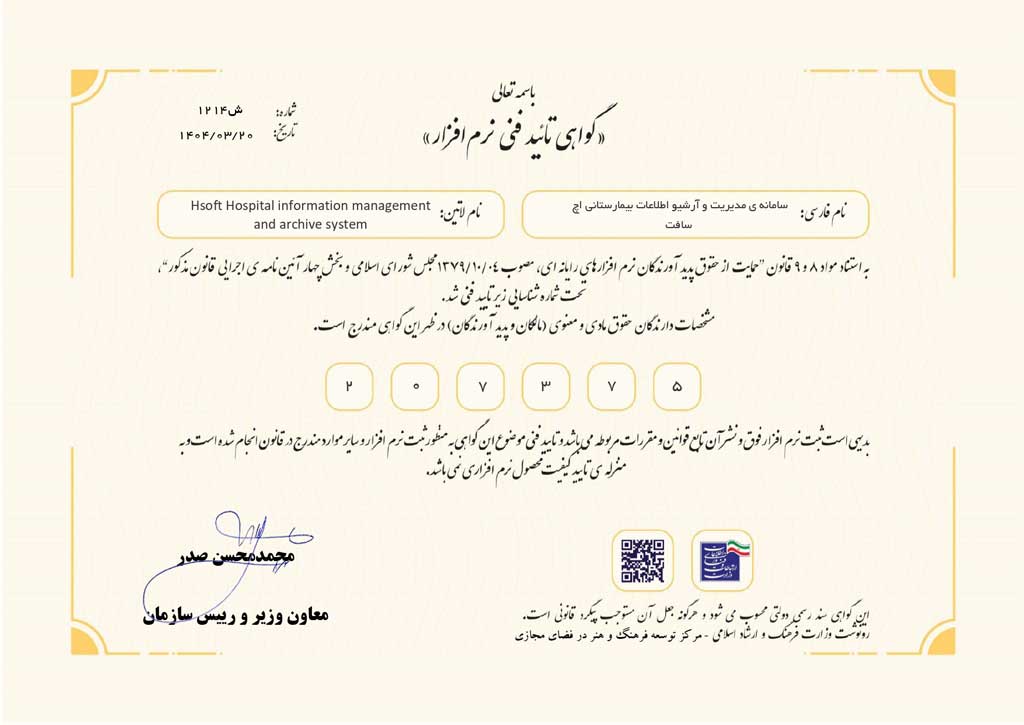 باسمه تعالی
«گواهی تائید فنی نرم افزار»
شماره: ش۱۲۱۴
تاریخ: ۱۴۰۴/۰۳/۲۰
نام فارسی: سامانه ی مدیریت و آرشیو اطلاعات بیمارستانی اچ
سافت
نام لاتین: Hsoft Hospital information management
and archive system
به استناد مواد ۸ و ۹ قانون "حمایت از حقوق پدید آورندگان نرم افزارهای رایانه ای، مصوب ۱۳۷۹/۱۰/۰۴ مجلس شورای اسلامی و بخش چهار آئین نامه ی اجرایی قانون مذکور"،
تحت شماره شناسایی زیر تایید فنی شد.
مشخصات دارندگان حقوق مادی و معنوی (مالکان و پدید آورندگان) در ظهر این گواهی مندرج است.
۲ ۰ ۷ ۳ ۷ ۵
بدیهی است ثبت نرم افزار فوق و نشر آن تابع قوانین و مقررات مربوطه می باشد و تایید فنی موضوع این گواهی به منظور ثبت نرم افزار و سایر موارد مندرج در قانون انجام شده است و به
منزله ی تایید کیفیت محصول نرم افزاری نمی باشد.
محمدمحسن صدر
معاون وزیر و رییس سازمان
این گواهی سند رسمی دولتی محسوب می شود و هرگونه جعل آن مستوجب پیگرد قانونی است.
رونوشت وزارت فرهنگ و ارشاد اسلامی - مرکز توسعه فرهنگ و هنر در فضای مجازی